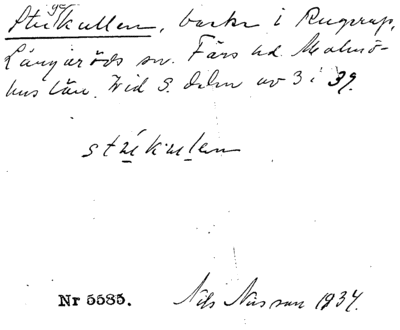 Stygekullen, backe i Rugerup,
Långaröds sn. Färs hd. Malmö-
hus län. Vid S. delen av 3 i 39.
stýkulan
Nr 5585. Nils Nilsson 1934.